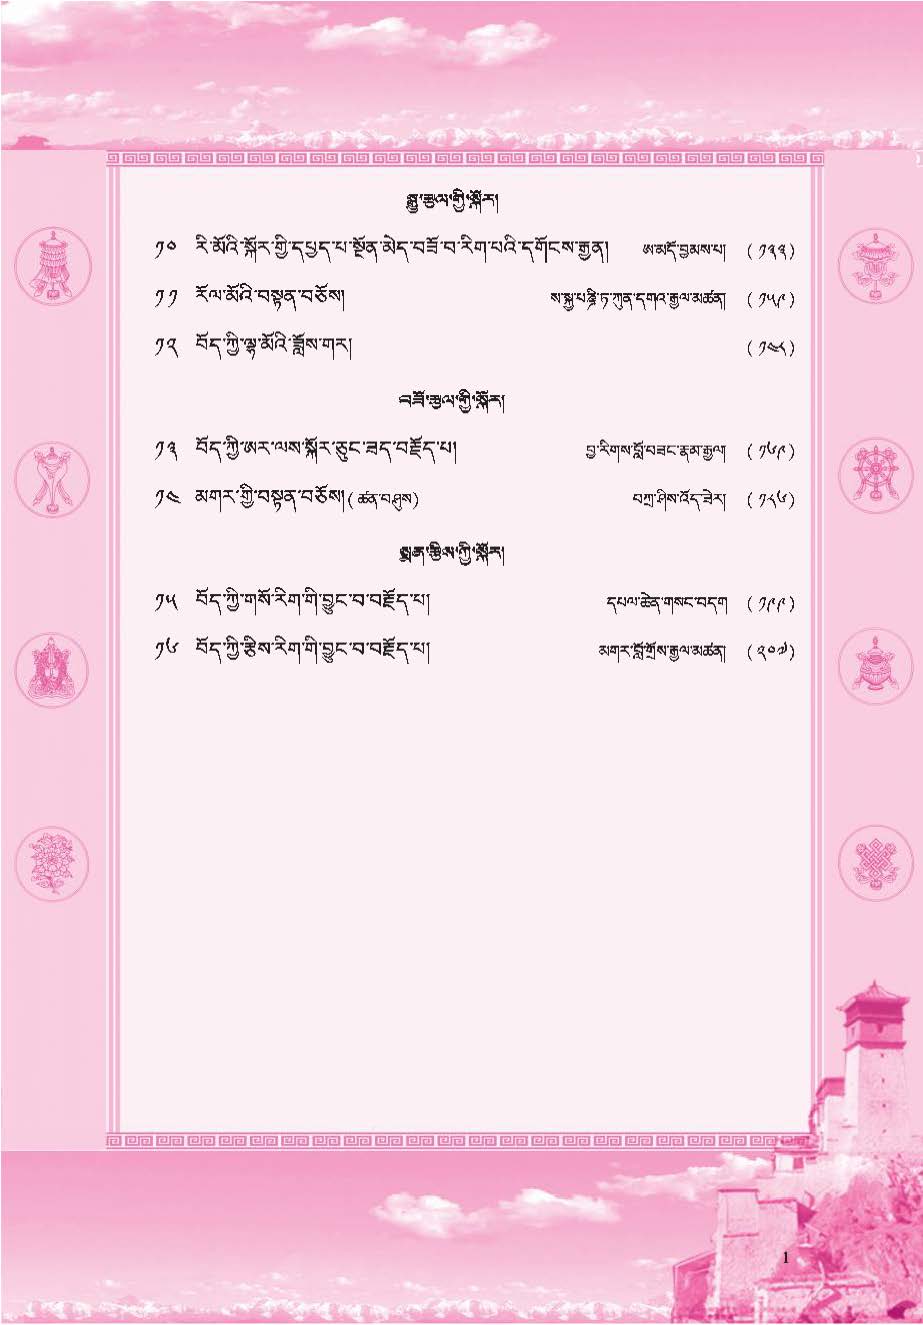 སྒྱུ་རྩལ་གྱི་སྐོར།
༡༠ རི་མོའི་སྐོར་གྱི་དཔྱད་པ་སྔོན་མེད་བཟོ་བ་རིག་པའི་དགོངས་རྒྱན། ཨ་མདོ་བྱམས་པ། ( ༡༣༣ )
༡༡ རོལ་མོའི་བསྟན་བཅོས། ས་སྐྱ་པཎྜི་ཏ་ཀུན་དགའ་རྒྱལ་མཚན། ( ༡༥༩ )
༡༢ བོད་ཀྱི་ལྷ་མོའི་ཟློས་གར། ( ༡༥༨ )
བཟོ་རྩལ་གྱི་སྐོར།
༡༣ བོད་ཀྱི་ཨར་ལས་སྐོར་ཅུང་ཟད་བརྗོད་པ། བྱ་རིགས་བློ་བཟང་རྣམ་རྒྱལ། ( ༡༦༩ )
༡༤ མགར་གྱི་བསྟན་བཅོས། ( ཚན་བཤུས ) བཀྲ་ཤིས་འོད་ཟེར། ( ༡༨༦ )
སྨན་རྩིས་ཀྱི་སྐོར།
༡༥ བོད་ཀྱི་གསོ་རིག་གི་བྱུང་བ་བརྗོད་པ། དཔལ་ཆེན་གསང་བདག ( ༡༩༩ )
༡༦ བོད་ཀྱི་རྩིས་རིག་གི་བྱུང་བ་བརྗོད་པ། མགར་བློ་གྲོས་རྒྱལ་མཚན། ( ༢༠༧ )
1